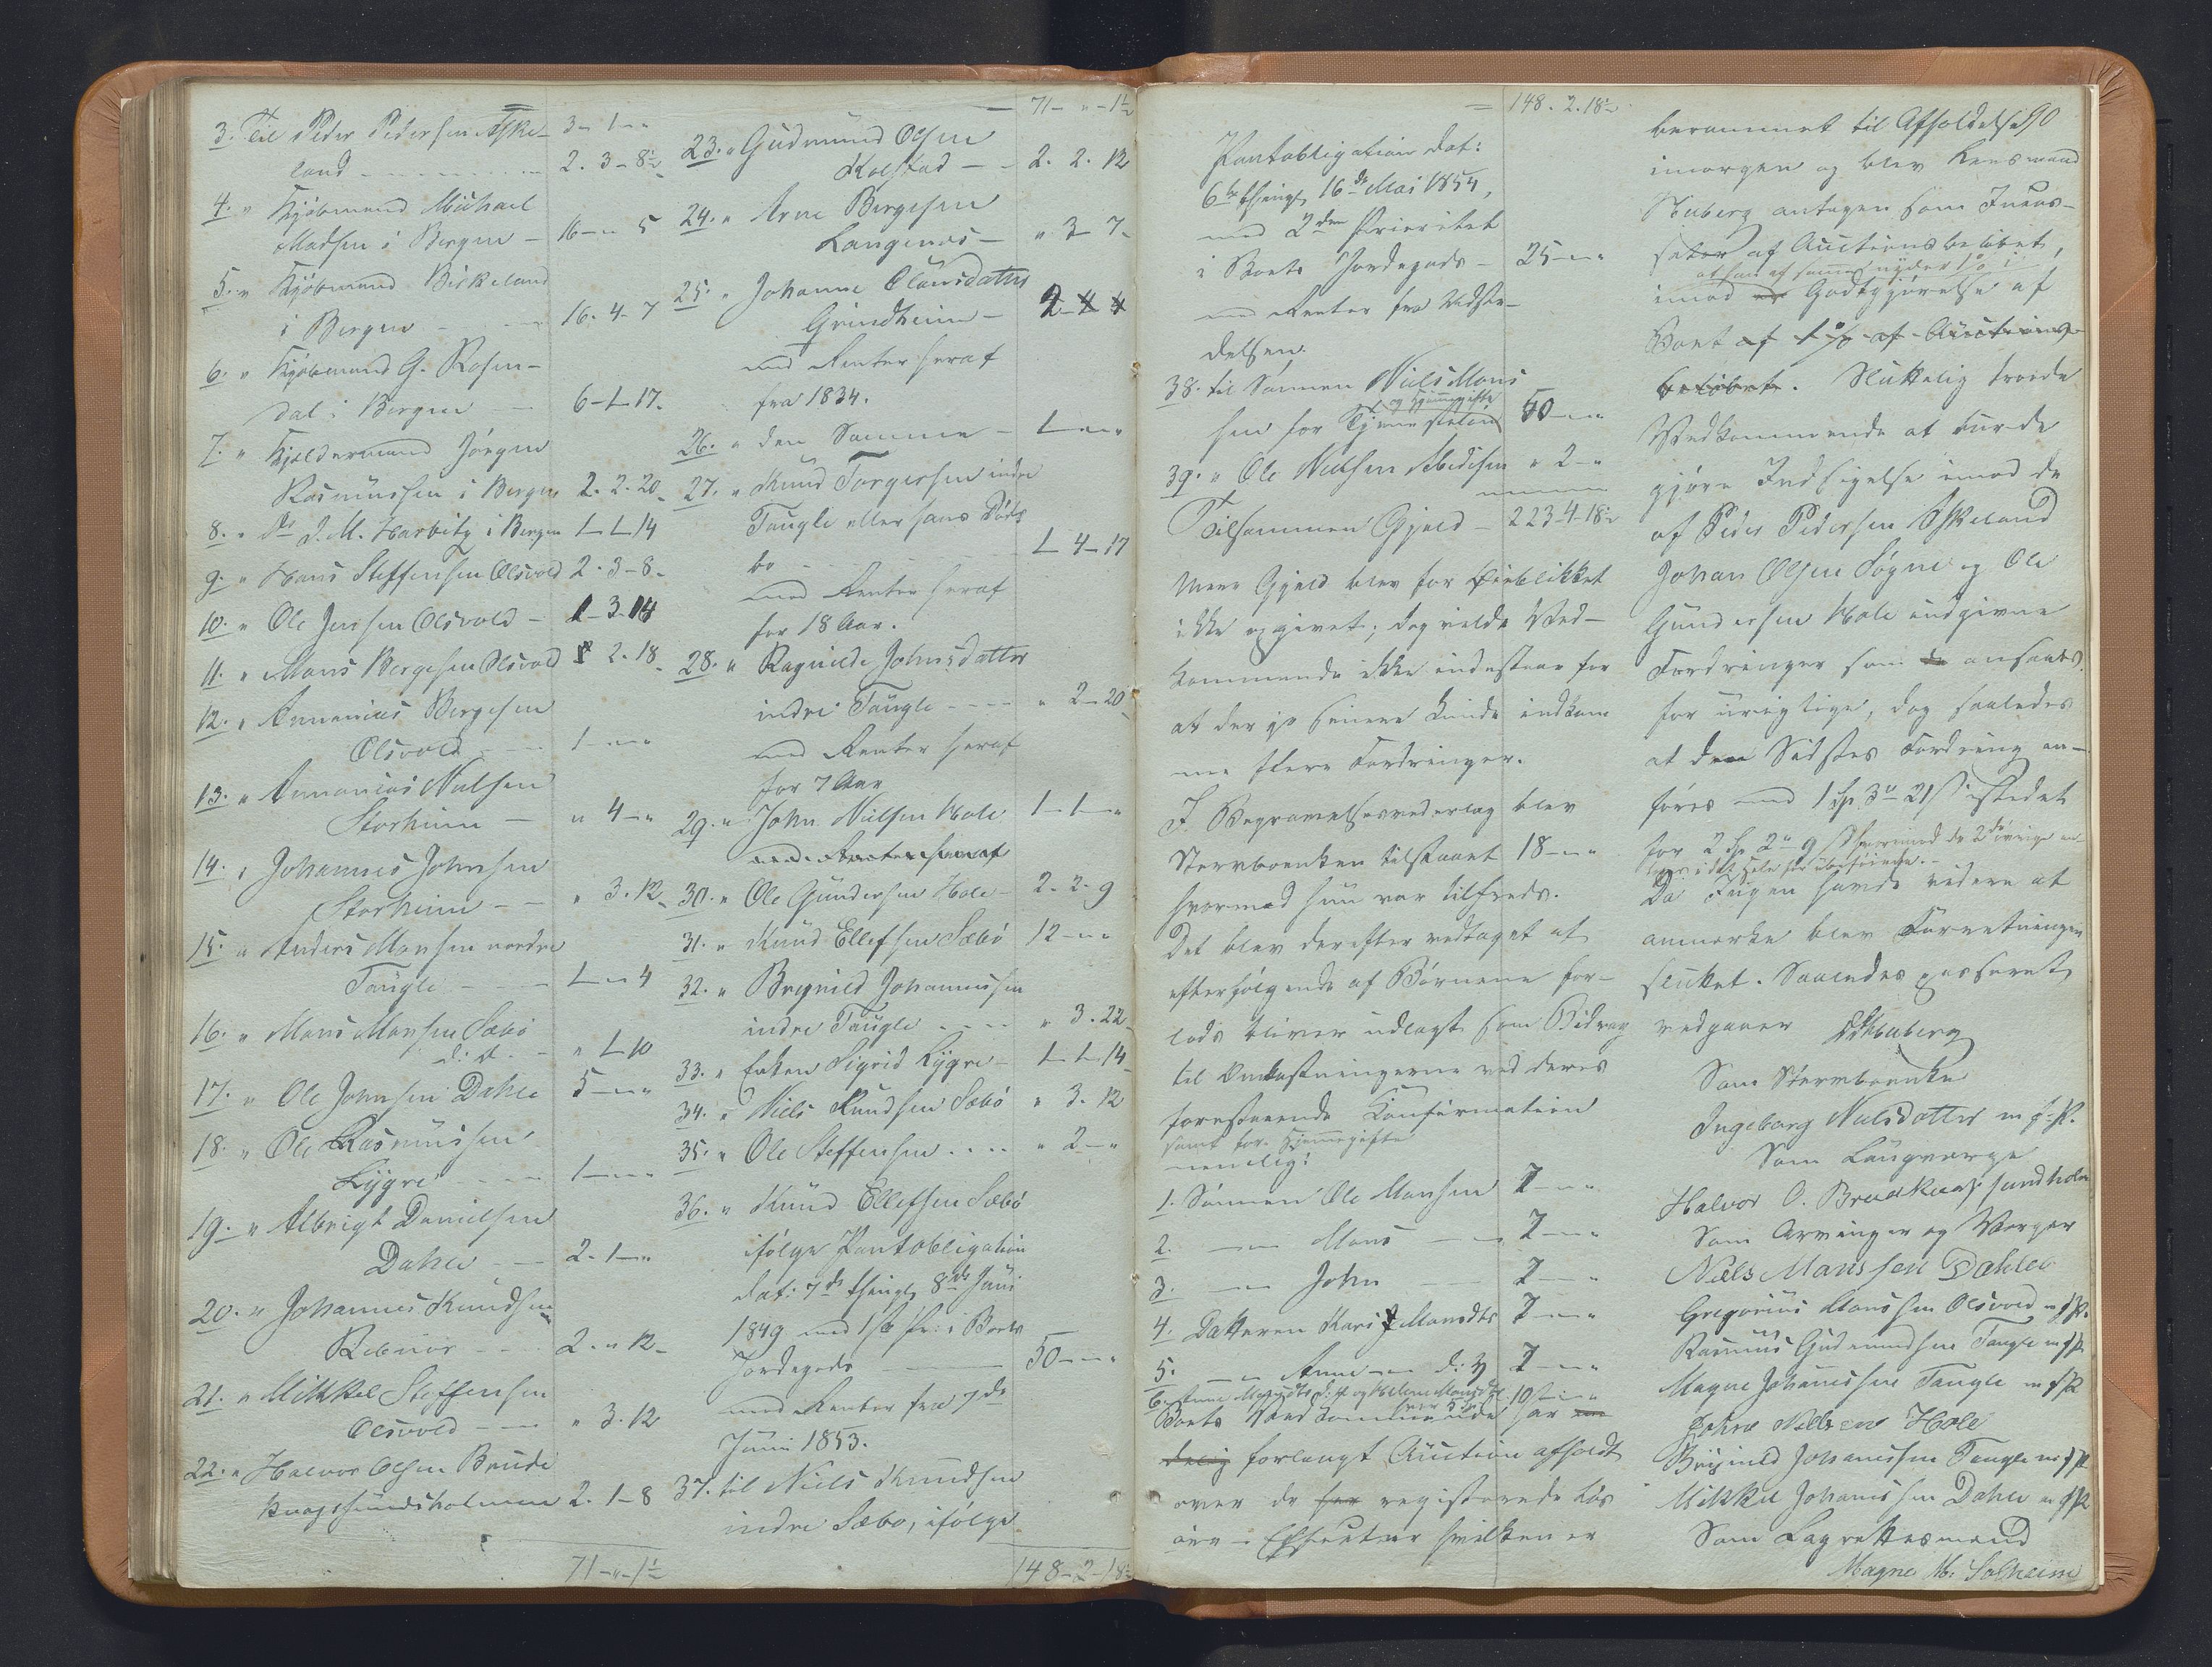 = 3-1-"
3. Til Peder Pedersen Eske-
land 2. 3-8½
4. " Kjøbmand Michael
Madsen i Bergen - 16-" 5
5. " Kjøbmand Birkeland
i Bergen 16. 4-7
6. " Kjøbmand G. Rosen-
dal i Bergen 6-1-17.
7. " Kjeldermand Jørgen
Rasmussen i Bergen 2. 2. 20
8. " J. M. Harbitz i Bergen 1-1-14
9. " Hans Steffensen Olsvold 2. 3-8-
10. " Ole Jensen Olsvold - 1-3-14
11. " Mons Bergesen Olsvold 2. 18
12. " Annanias Bergesen
Olsvold 1-"-"
13. " Annanias Nielsen
Storheim " 4-"
14. " Johannes Johnsen
Storheim " 3. 12
15. " Anders Monsen nordre
Tøugle 1-" 4
16. " Mons Monsen Sæbø
d: æ. " 1-10
17. " Ole Johnsen Dahle 5-"-"
18. " Ole Rasmussen
Lygre 1-"-"
19. " Albrigt Danielsen
Dahle 2. 1-"
20. " Johannes Knudsen
Rebnor 2. " 12-
21. " Mikkel Steffensen
Olsvold " 3. 12
22. " Halvor Olsen Brude
knagsundsholmen 2. 1-8
71-"-1½
= 71-"-1½
23. " Gudmund Olsen
Kolstad - 2. 2. 12
24. " Arne Bergesen
Langenæs - " 3-7-
25. " Johanne Olausdatter
Grindheim - 2-4-4
med Renter heraf
fra 1834.
26. " den Samme - 1-"-"
27. " Knud Torgersen indre
Tøugle eller hans Døds
bo 1-4-17
med Renter heraf
for 18 Aar.
28. " Ragnilde Johnsdatter
indre Tøugle " 2-20
med Renter heraf
for 7 Aar
29. " John Nielsen Hole 1-1-"
med Renter heraf
30. " Ole Gundersen Hole - 2. 2. 9
31. " Knud Ellefsen Sæbø 12-"-"
32. " Brynild Johannessen
indre Tøugle " 3. 22
33. " Enken Sigrid Lygre - 1-1-14
34. " Niels Knudsen Sæbø " 3. 12
35. " Ole Steffensen " 2-"
36. " Knud Ellefsen Sæbø
ifølge Pantobligation
dat: 7de thingl 8de Juni
1849 med 1ste Pr: i Boets
Jordegods 50-"-"
med Renter fra 7de
Juni 1853.
37. til Niels Knudsen
indre Sæbø, ifølge
148-2-18½
= 148. 2. 18½
Pantobligation dat:
6te thingl 16de Mai 1854,
med 2den Prioritet
i Boets Jordegods - 25-"-"
med Renter fra Udste-
delsen.
38. til Sønnen Niels Mons
og Hjemmegifte
sen for Tjenesteløn 50-"-"
39. " Ole Nielsen " 2-"
Tilsammen Gjeld - 223-4-18½
Mere Gjeld blev for Øieblikket
ikke opgivet; dog vilde Ved-
kommende ikke indestaae for
at der jo senere kunde indkom
me flere Fordringer.
I Begravelsesvederlag blev
Stervboenken tilstaaet 18-"-"
hvormed hun var tilfreds.
Det blev derefter vedtaget at
efterfølgende af Børnene for-
lods bliver udlagt som Bidrag
til Omkostningerne ved deres
forestaaende Konfirmation
samt for Hjemmegifte
nemlig:
1. Sønnen Ole Monsen 7-"-"
2. — Mons — 7-"-"
3. — John 7-"
4. Datteren Kari Monsdtr 7-"-"
5. — Anne — d: y 7-"-"
Boets Vedkommende har
forlangt Auction afholdt
over de registerede Løs
øre-Effecter hvilken er
90
berammet til Afholdelse
imorgen og blev Lensmand
Stuberg antagen som Incas-
sator af Auctionsbeløbet,
at han af samme nyder 1% i
imod Godtgjørelse af
Boet af 1% af Auctions-
beløbet. Sluttelig troede
Vedkommende at burde
gjøre Indsigelse imod de
af Peder Pedersen Eskeland
Johan Olsen Søgne og Ole
Gundersen Hole indgivne
Fordringer som de ansaaes
for urigtige, dog saaledes
at den Sidstes Fordring an-
føres med 1 Sp 3 " 21 s istedet
for 2 Sp 2 " 9 s hvorimod de 2de øvrige
Da Ingen havde videre at
anmærke blev Forretningen
sluttet. Saaledes passeret
vedgaaer Stuberg
Som Stervboenke
Ingeborg Nielsdatter m. f. P.
Som Laugværge
Halvor O. Brudknagsundholm
Som Arvinger og Værger
Niels Monssen Dahle
Gregorius Monssen Olsvold m f P.
Rasmus Gudmundsen Tøugle m f P
Magne Johannessen Tøugle m f P
John Nielsen Hole
Brynild Johannessen Tøugle m f P
Mikkel Johannessen Dahle m f P
Som Lagrettesmænd
Magne M. Solheim